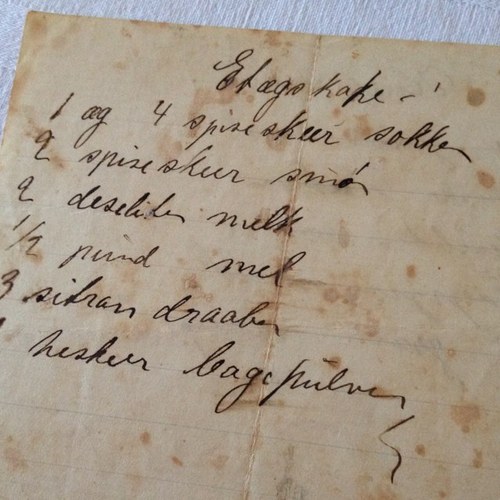 Etægskake -
1 æg 4 spiseskeer sokker
2 spiseskeer smør
2 deseliter melk
1/2 pund mel
3 sitran draaber
heskeer bagepulver